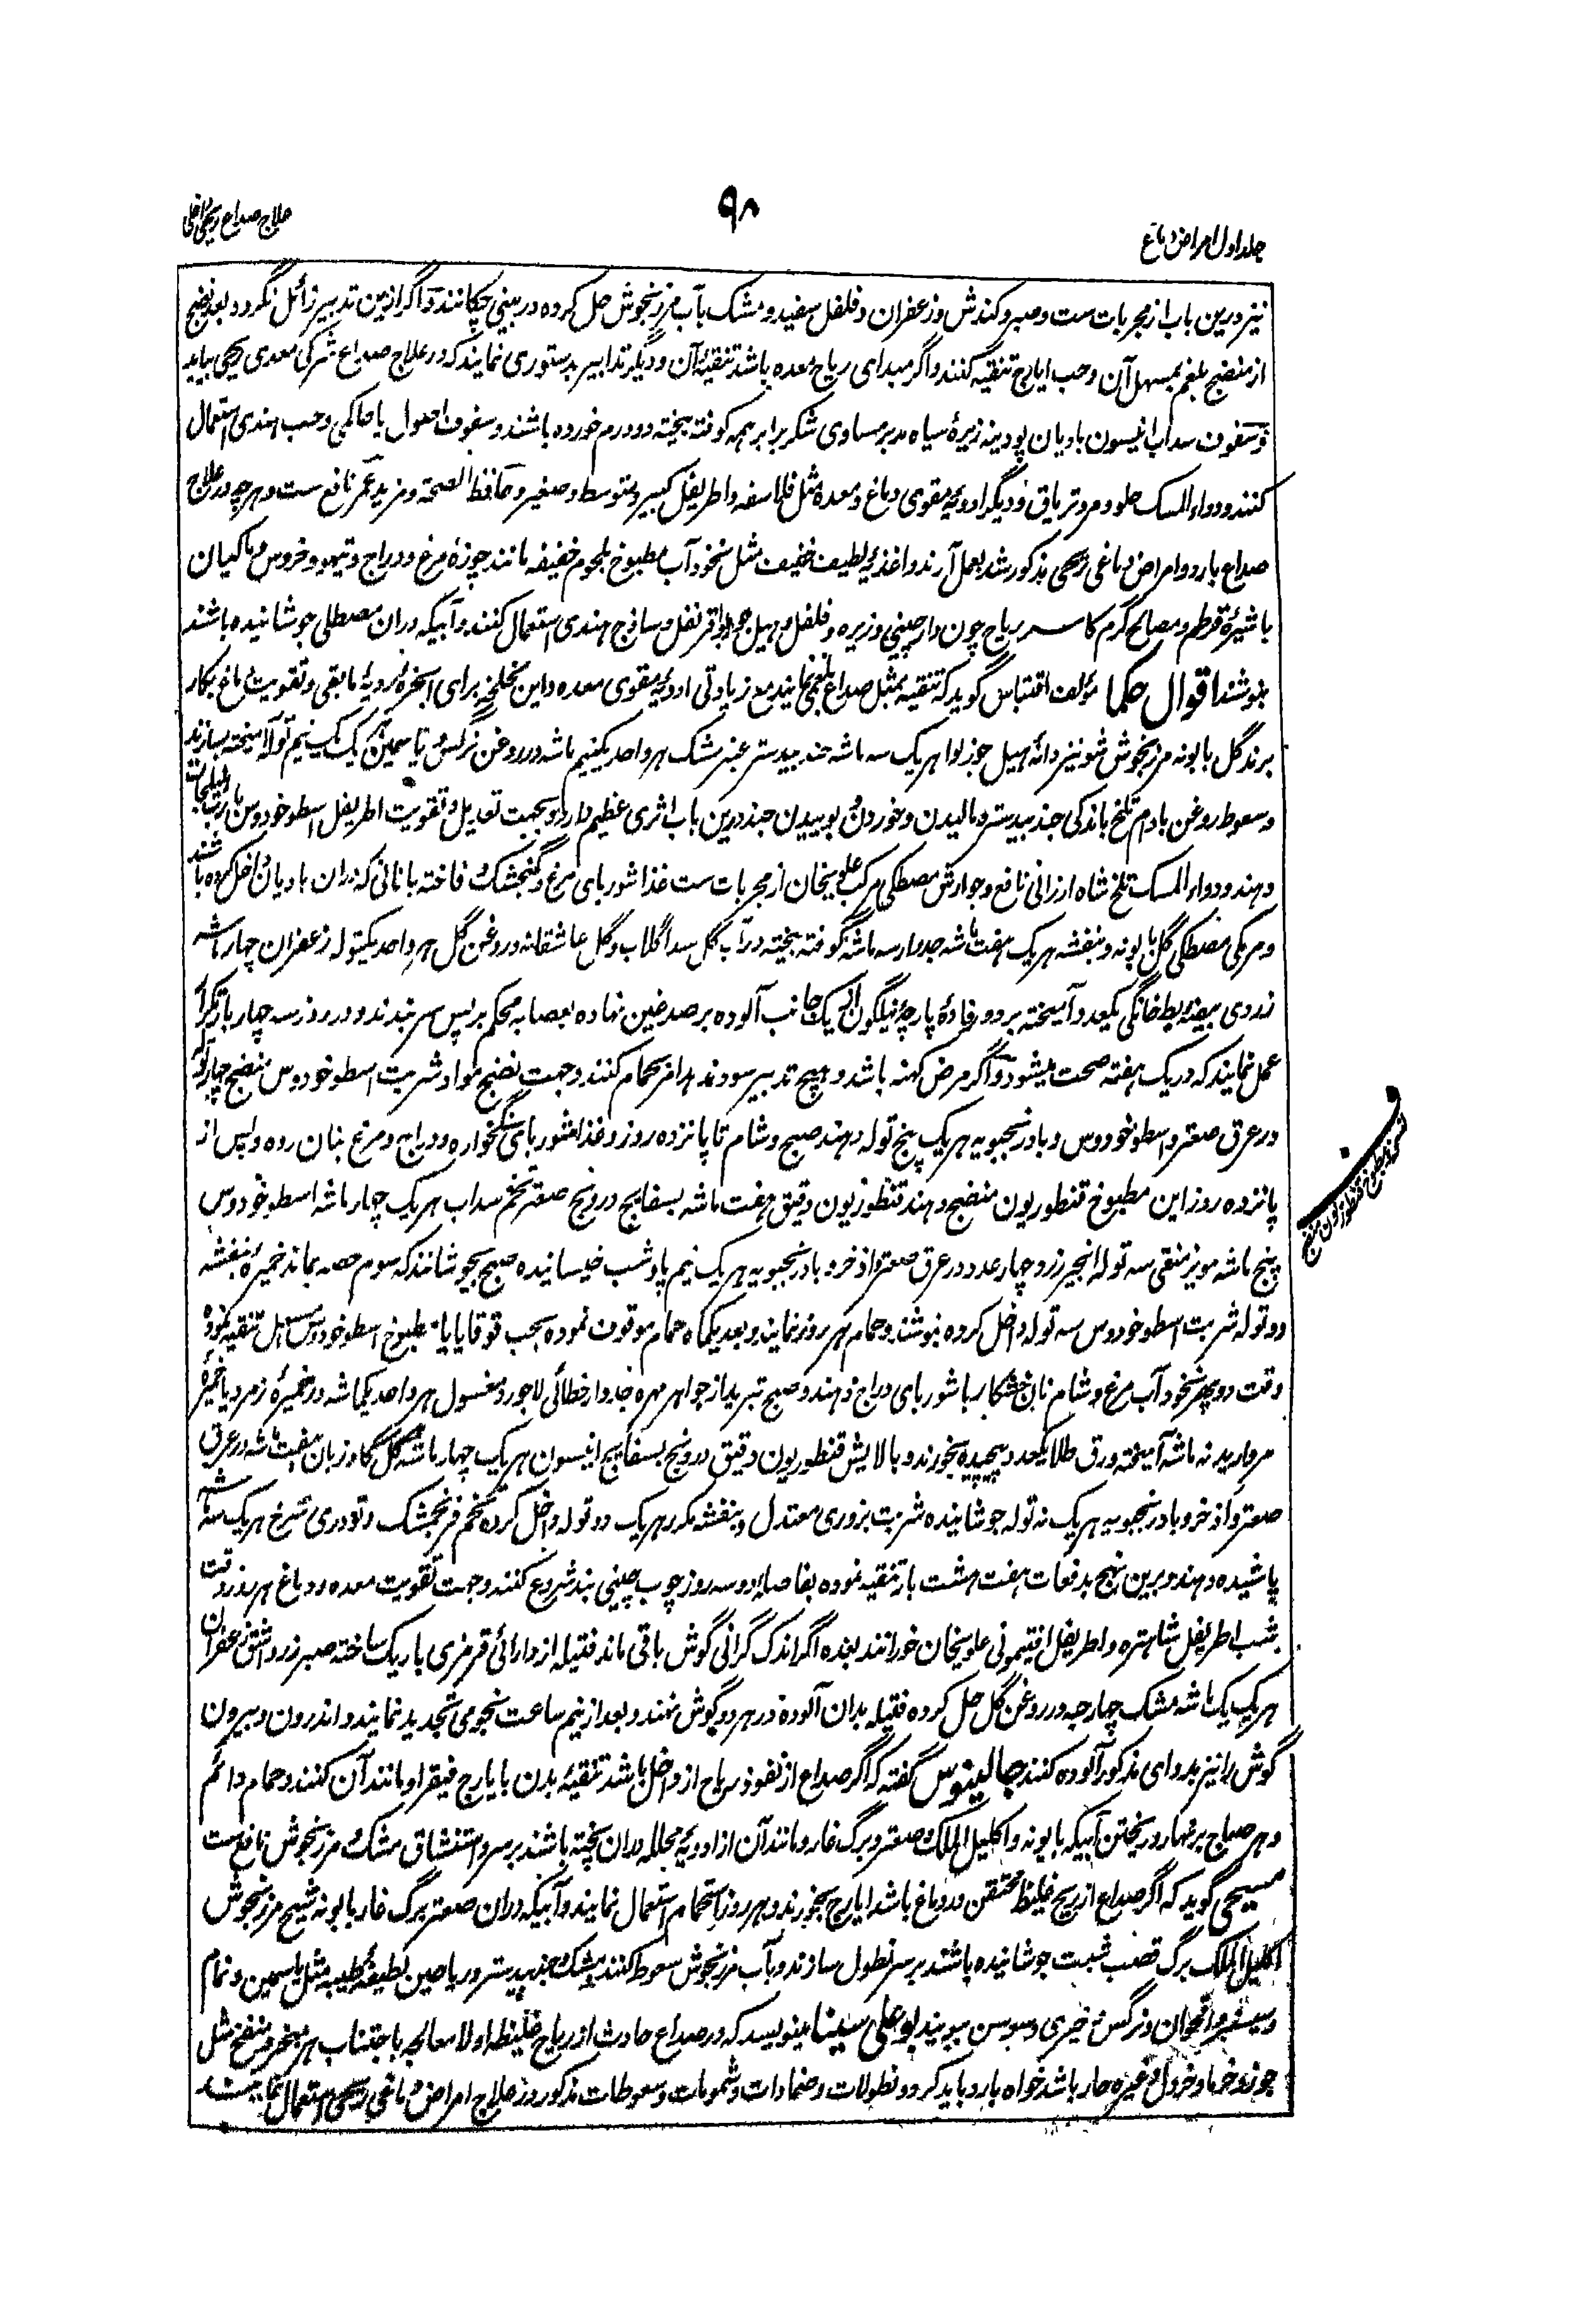 جلد اول امراض دماغ
۹۸
علاج صداع ریحی داخلی
نیز درین باب از مجربات ست و صبر و کندش و زعفران و فلفل سفید و مشک بآب مرزنجوش حل کرده در بینی چکانند و اگر ازین تدبیر زائل نگردد بعد نضج
از منضج بلغم بمسهل آن و حب ایارج تنقیه کنند و اگر مبدای ریاح معده باشد تنقیۀ آن و دیگر تدابیر بدستوری نمایند که در علاج صداع شرکی معدی ریحی بیاید
و سفوف سداب انیسون بادیان پودینه زیرۀ سیاه مدبر مساوی شکر برابر همه کوفته بیخته دو درم خورده باشند و سفوف اصول یا حاکمی و حب هندی استعمال
کنند و دواء المسک حلو و مر و تریاق و دیگر ادویه مقوی دماغ و معده مثل فلاسفه و اطریفل کبیر و متوسط و صغیر و حافظ الصحة و مزید عمر نافع ست و هرچه در علاج
صداع بارد و امراض دماغی ریحی مذکور شد بعمل آرند و اغذیۀ لطیف خفیف مثل نخود آب مطبوخ بلحوم خفیفه مانند چوزۀ مرغ و دراج و تیهو و خروس و ماکیان
با شیرۀ قرطم و مصالح گرم کاسر ریاح چون دارچینی و زیره و فلفل و هیل جوزبوا قرنفل و ساذج هندی استعمال کنند و آبیکه دران مصطگی جوشانیده باشند
بنوشند اقوال حکما مؤلف اقتباس گوید که تنقیه بمثل صداع بلغمی نمایند مع زیادتی ادویۀ مقوی معده و این لخلخه برای ابخرۀ ردیۀ مابقی و تقویت دماغ بکار
برند گل بابونه مرزنجوش شونیز دانۀ هیل جوزبوا هر یک سه ماشه جندبیدستر عنبر مشک هر واحد یکنیم ماشه در روغن نرگس و یاسمین هر یک یک نیم توله آمیخته بسازند
و سعوط روغن بادام تلخ باندکی جندبیدستر و مالیدن و خوردن و بوییدن جند درین باب اثری عظیم دارد و بجهت تعدیل و تقویت اطریفل اسطوخودوس با مربای هلیله
دهند و دواء المسک تلخ شاه ارزانی نافع و جوارش مصطگی مرکب علویخان از مجربات ست غذا شوربای مرغ و گنجشک و فاخته با نانی که دران بادیان داخل کرده باشند
و مرمکی مصطگی گل بابونه و بنفشه هر یک هفت ماشه جدوار سه ماشه کوفته بیخته در آب گل سدا گلاب و گل عاشقانه و روغن گل هر واحد یکتوله زعفران چهار ماشه
زردی بیضۀ بط خانگی یکعدد آمیخته بر دو رفادۀ پارچۀ نیلگون از یک جانب آلوده بر صدغین نهاده بعصابه محکم بر پس سر بندند و در روز سه چار بار تکرار
عمل نمایند که در یک هفته صحت میشود و اگر مرض کهنه باشد و هیچ تدبیر سود ندهد امر بحمام کنند و جهت نضج مواد شربت اسطوخودوس منضج چار توله
در عرق صعتر و اسطوخودوس و بادرنجبویه هر یک پنج توله دهند صبح و شام تا پانزده روز و غذا شوربای سنگخواره و دراج و مرغ بنان روه و پس از
پانزده روز این مطبوخ قنطوریون منضج دهند قنطوریون دقیق هفت ماشه بسفایج درونج صعتر تخم سداب هر یک چهار ماشه اسطوخودوس
پنج ماشه مویز منقی سه توله انجیر زرد چار عدد در عرق صعتر و اذخر و بادرنجبویه هر یک نیم پاو شب خیسانیده صبح بجوشانند که سوم حصه بماند خمیرۀ بنفشه
دو توله شربت اسطوخودوس سه توله داخل کرده بنوشند و حمام هر روز نمایند و بعد یکماه حمام موقوف نموده بحب قوقایا یا مطبوخ اسطوخودوس مسهل تنقیه کرده
وقت دوپهر نخود آب مرغ و شام نان خشکار با شوربای دراج دهند و صبح تبرید از جواهر مهره جدوار خطائی لاجورد مغسول هر واحد یکماشه در خمیرۀ زمرد یا خمیرۀ
مروارید نه ماشه آمیخته ورق طلا یکعدد پیچیده بخورند و بالایش قنطوریون دقیق درونج بسفایج انیسون هر یک چهار ماشه گل گاوزبان هفت ماشه در عرق
صعتر و اذخر و بادرنجبویه هر یک نه توله جوشانیده شربت بزوری معتدل و بنفشه مکرر هر یک دو توله داخل کرده تخم فرنجمشک و تودری سرخ هر یک سه ماشه
پاشیده دهند و برین نهج بدفعات هفت هشت بار تنقیه نموده بفاصلۀ دو سه روز چوب چینی بند شروع کنند و جهت تقویت معده و دماغ هر روز وقت
شب اطریفل شاهتره و اطریفل افتیمونی علویخان خورانند بعده اگر اندک گرانی گوش باقی ماند فتیله از دارائی قرمزی باریک ساخته صبر زرد اشق زعفران
هر یک یک ماشه مشک چار حبه در روغن گل حل کرده فتیله بدان آلوده در هر دو گوش نهند و بعد از نیم ساعت نجومی تجدید نمایند و اندرون و بیرون
گوش را نیز بدوای مذکور آلوده کنند جالینوس گفته که اگر صداع از نفوذ ریاح از داخل باشد تنقیۀ بدن با یارج فیقرا و مانند آن کنند و حمام دائم
و هر صباح بر نهار و ریختن آبیکه بابونه و اکلیل الملک و صعتر و برگ غار و مانند آن از ادویۀ محلله دران پخته باشند بر سر و استنشاق مشک و مرزنجوش نافع ست
مسیحی گوید که اگر صداع از ریح غلیظ محتقن در دماغ باشد ایارج بخورند و هر روز استحمام استعمال نمایند و آبیکه دران صعتر برگ غار بابونه شیح مرزنجوش
اکلیل الملک برگ قصب شبت جوشانیده باشند بر سر نطول سازند و بآب مرزنجوش سعوط کنند و مشک و جندبیدستر و ریاحین لطیفۀ طیبه مثل یاسمین و نمام
و سیسنبر و اقحوان و نرگس و خیری و سوسن ببویند بوعلی سینا مینویسد که در صداع حادث از ریاح غلیظه اولا معالجه باجتناب هر مبخر و منفخ مثل
جوز و خرما و خردل و غیره حار باشد خواه بارد باید کرد و نطولات و ضمادات و شمومات و سعوطات مذکور در علاج امراض دماغی ریحی استعمال نمایند
نسخۀ مطبوخ قنطوریون منضج